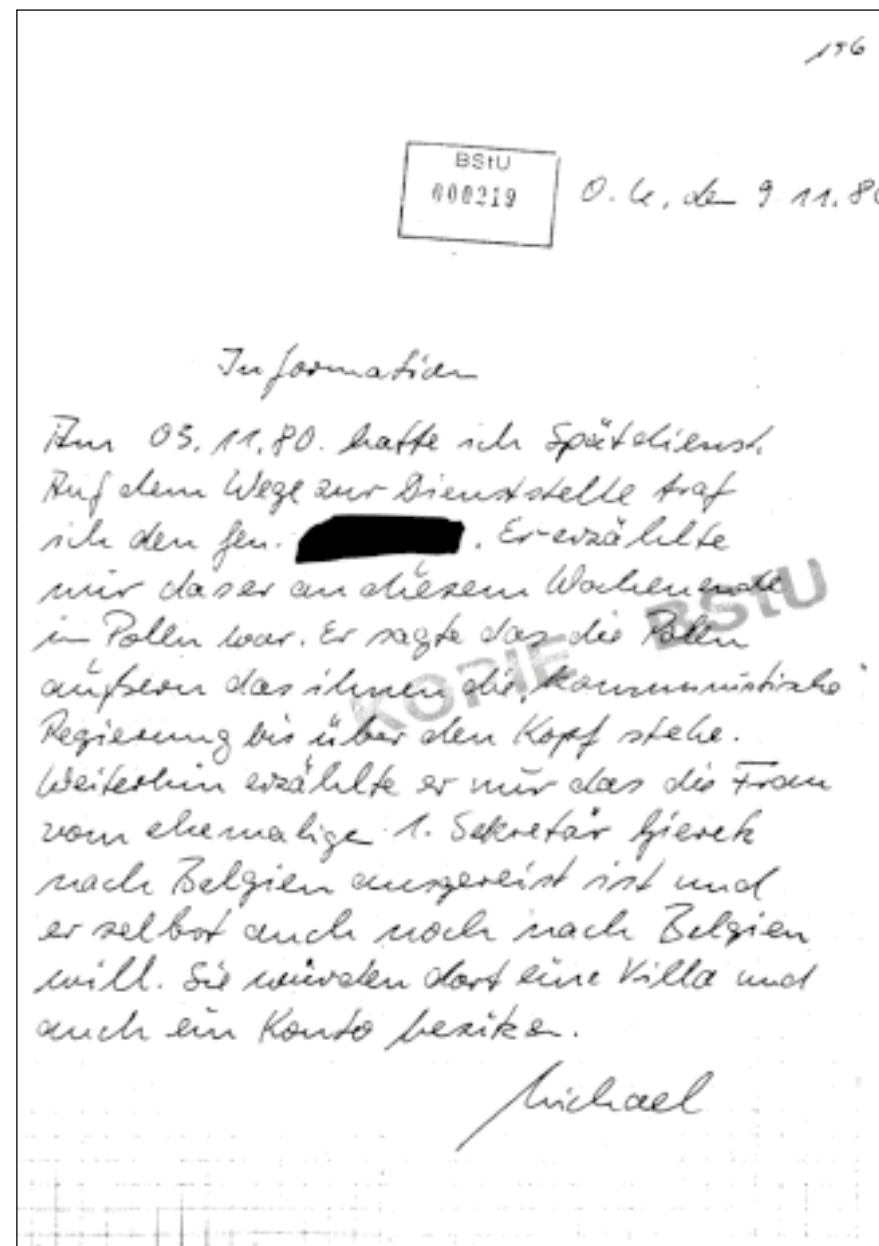 156
BStU
000219
O. U., den 9.11.80
Information
Am 03.11.80. hatte ich Spätdienst.
Auf dem Wege zur Dienststelle traf
ich den Gen. . Er erzählte
mir das er an diesem Wochenende
in Pollen war. Er sagte das die Pollen
äußern das ihnen die "kommunistische"
Regierung bis über den Kopf stehe.
Weiterhin erzählte er mir das die Frau
vom ehemalige 1. Sekretär Gierek
nach Belgien ausgereist ist und
er selbst auch noch nach Belgien
will. Sie würden dort eine Villa und
auch ein Konto besitzen.
Michael
KOPIE BStU